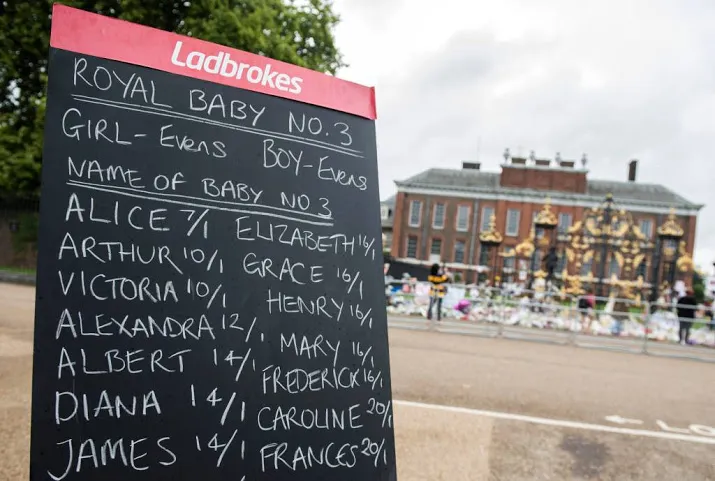 Ladbrokes
ROYAL BABY NO.3
GIRL-Evens BOY-Evens
NAME OF BABY NO3
ALICE 7/1 ELIZABETH 16/1
ARTHUR 10/1 GRACE 16/1
VICTORIA 10/1 HENRY 16/1
ALEXANDRA 12/1 MARY 16/1
ALBERT 14/1 FREDERICK 16/1
DIANA 14/1 CAROLINE 20/1
JAMES 14/1 FRANCES 20/1